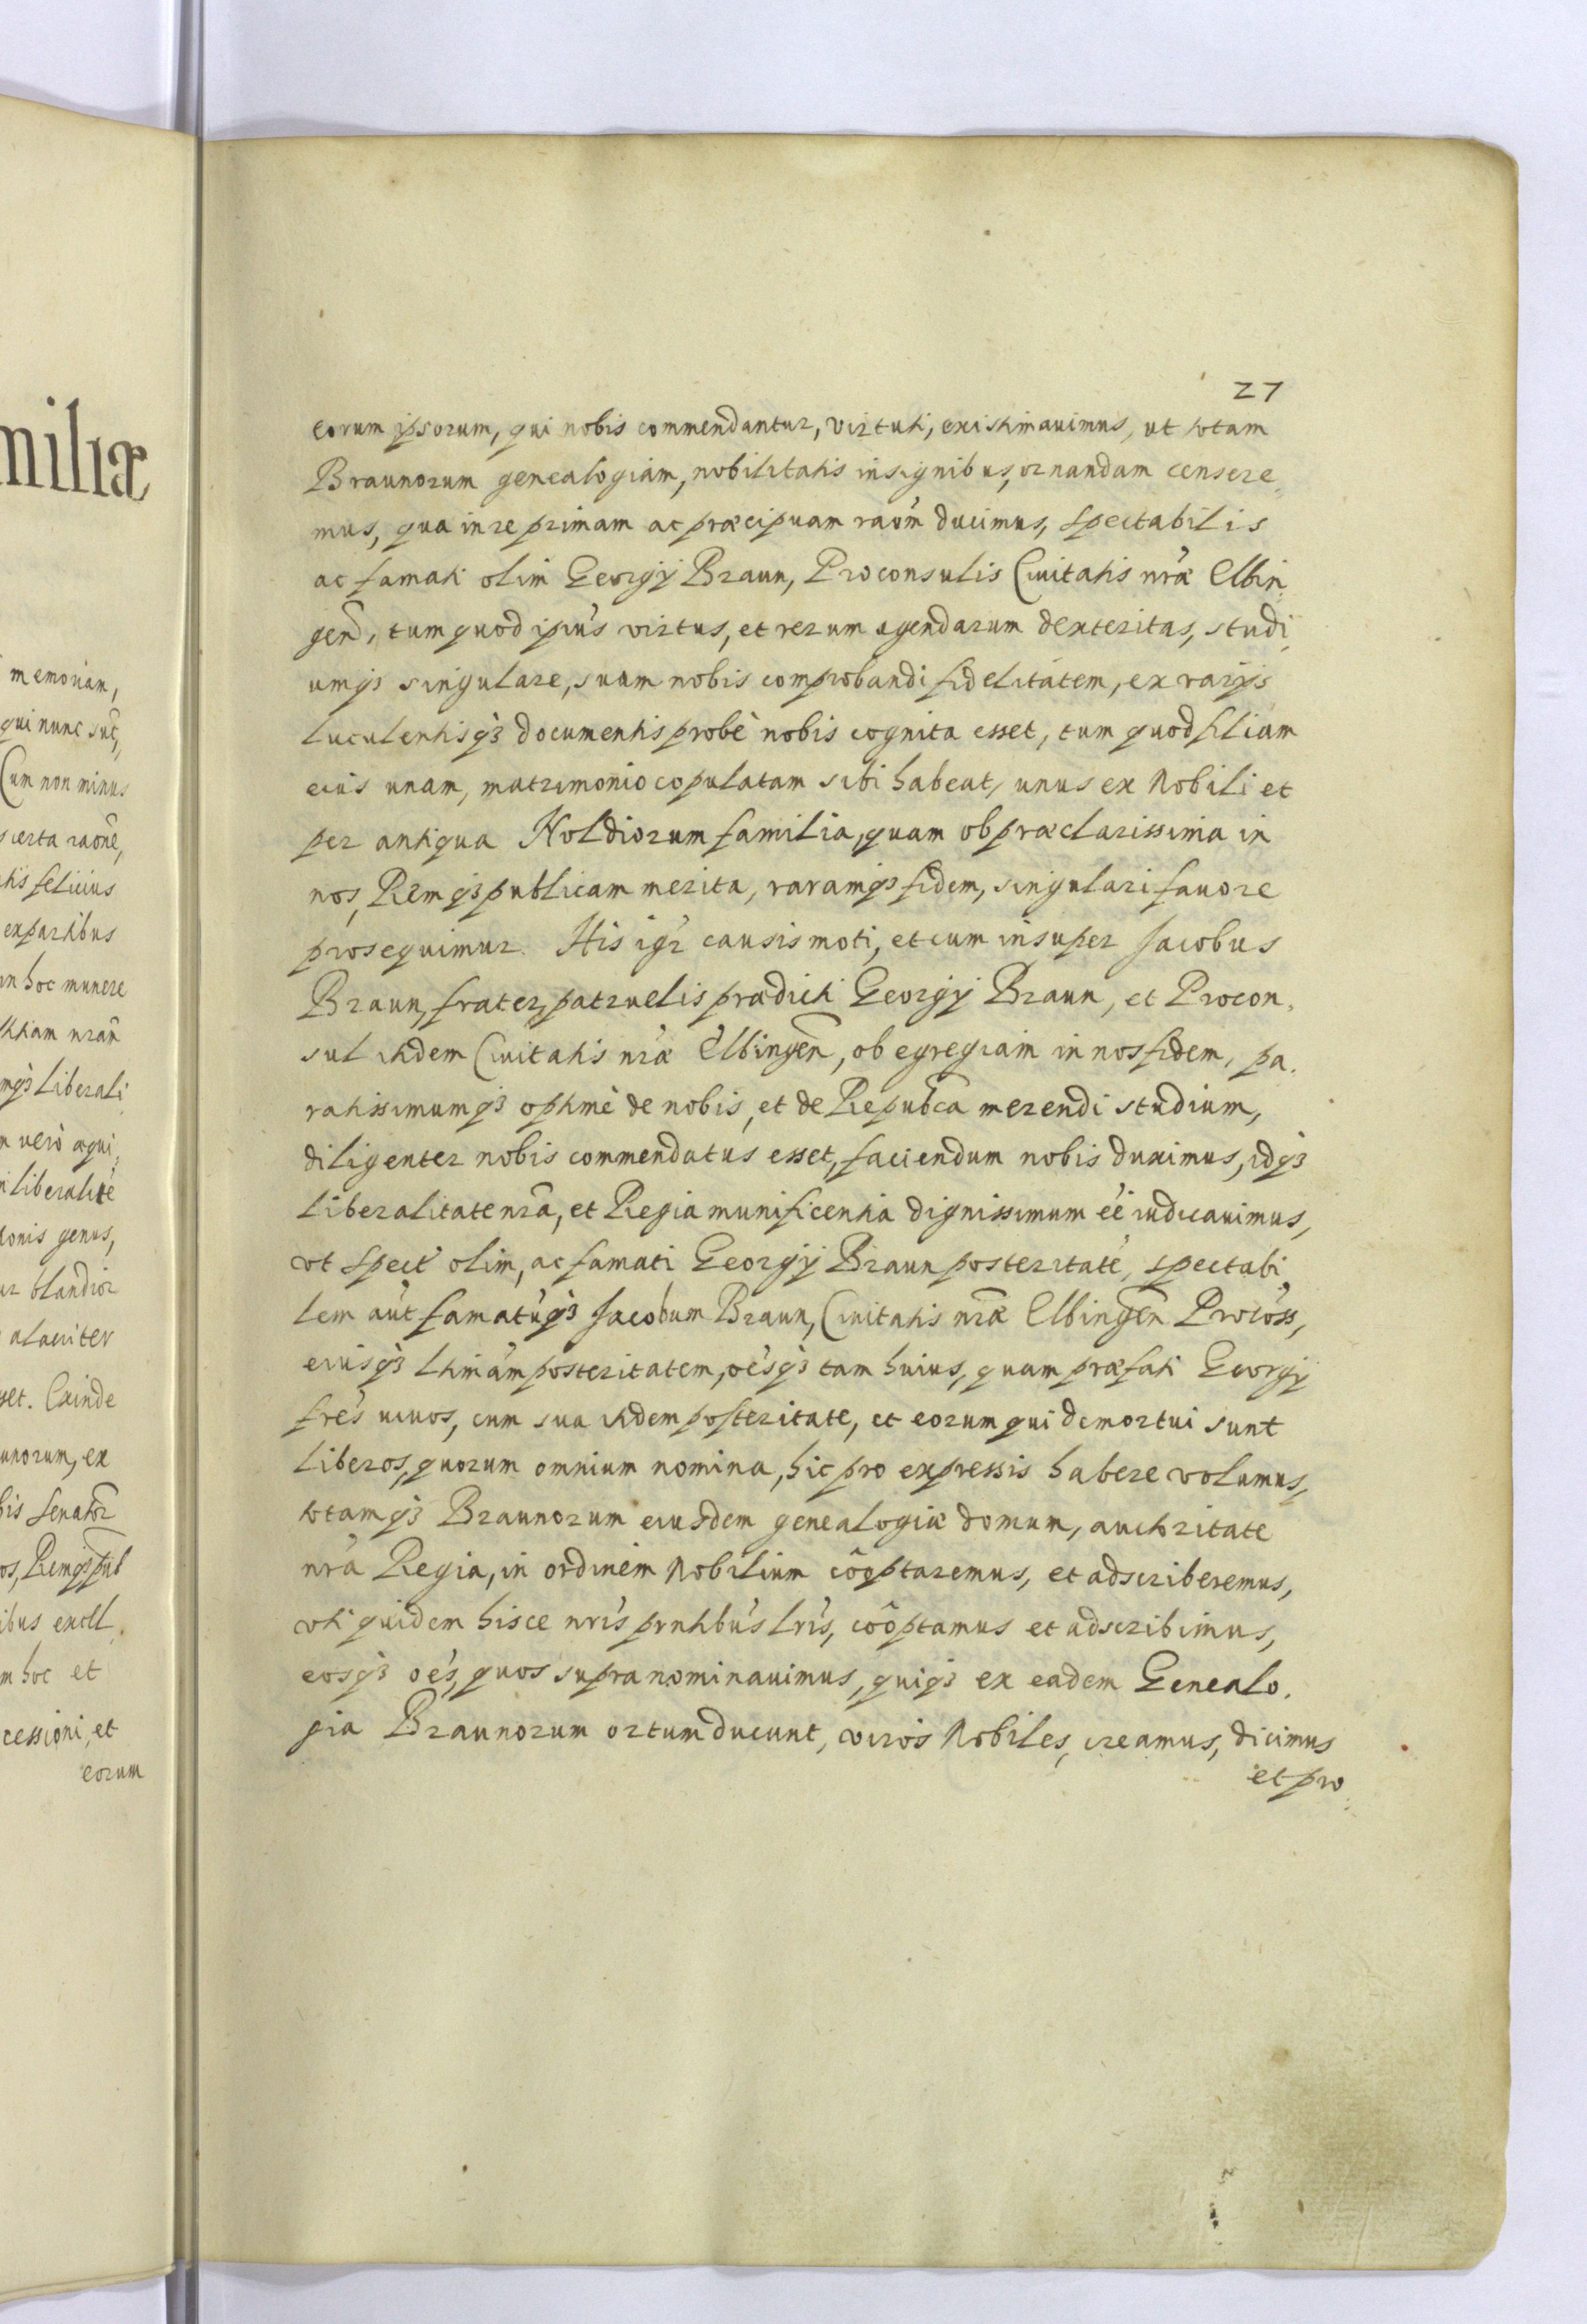 miliæ
memoriam,
qui nunc sũt,
Cum non minus
certa raõne,
tis felicius
ex partibus
in hoc munere
ntiam nrãm
mqȝ liberali
vero aequi,
liberalitẽ
onis genus,
ur blandior
alacriter
et. Exinde
unorum, ex
bis Senatõr
os, Remqȝ pub̃
ibus excell
m hoc et
cessioni, et
eorum
27
eorum ipsorum, qui nobis commendantur, virtuti, existimauimus, ut totam
Braunorum genealogiam, nobilitatis insignibus, ornandam censere,
mus, qua in re primam ac præcipuam raõm ducimus, Spectabilis
ac famati olim Georgij Braun, Proconsulis Ciuitatis nr̃æ Elbin,
geñ, tum quod ipiũs virtus, et rerum agendarum dexteritas, studi,
umqȝ singulare, suam nobis comprobandi fidelitatem, ex varijs
luculentisqȝ documentis probè nobis cognita esset, tum quod filiam
eius unam, matrimonio copulatam sibi habeat, unus ex Nobili et
per antiqua Noldiorum familia, quam ob præclarissima in
nos, Remqȝ publicam merita, raramqȝ fidem, singulari fauore
prosequimur. His igr̃ causis moti, et cum insuper Jacobus
Braun, frater, patruelis prædicti Georgij Braun, et Procon,
sul itidem Ciuitatis nr̃æ Elbingeñ, ob egregiam in nos fidem, pa,
ratissimumqȝ optimè de nobis, et de Repub̃ca merendi studium,
diligenter nobis commendatus esset, faciendum nobis duximus, idqȝ
liberalitate nr̃a, et Regia munificentia dignissimum eẽ iudicauimus,
vt Spect̃ olim, ac famati Georgij Braun posteritatẽ, spectabi,
lem aũt famatũqȝ Jacobum Braun, Ciuitatis nr̃æ Elbingeñ Procõss,
eiusqȝ ltimãm posteritatem, oẽsqȝ tam huius, quam præfati Georgij
frẽs uiuos, cum sua itidem posteritate, et eorum qui demortui sunt
liberos, quorum omnium nomina, hic pro expressis habere volumus,
totamqȝ Braunorum eiusdem genealogiæ domum, auctoritate
nr̃a Regia, in ordinem Nobilium côoptaremus, et adscriberemus,
vti quidem hisce nrĩs prntibũs lrĩs, côoptamus et adscribimus,
eosqȝ oẽs, quos supra nominauimus, quiqȝ ex eadem Genealo,
gia Braunorum ortum ducunt, viros Nobiles, creamus, dicimus
et pro,